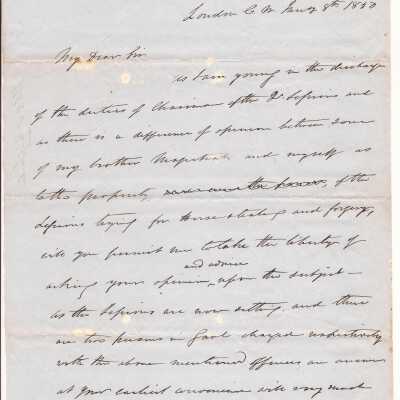 London C.W. Jany 8th 1850
My Dear Sir
as I am young in the discharge
of the duties of Chairman of the Qr Sessions and
as there is a difference of opinion between some
of my brother Magistrates and myself as
to the propriety, of the
Sessions trying for Horse stealing and forgery,
will you permit me to take the liberty of
asking your opinion, and advice upon the subject —
as the Sessions are now sitting and there
are two persons in Gaol charged
with the above mentioned offences an answer
at your earliest convenience will very much